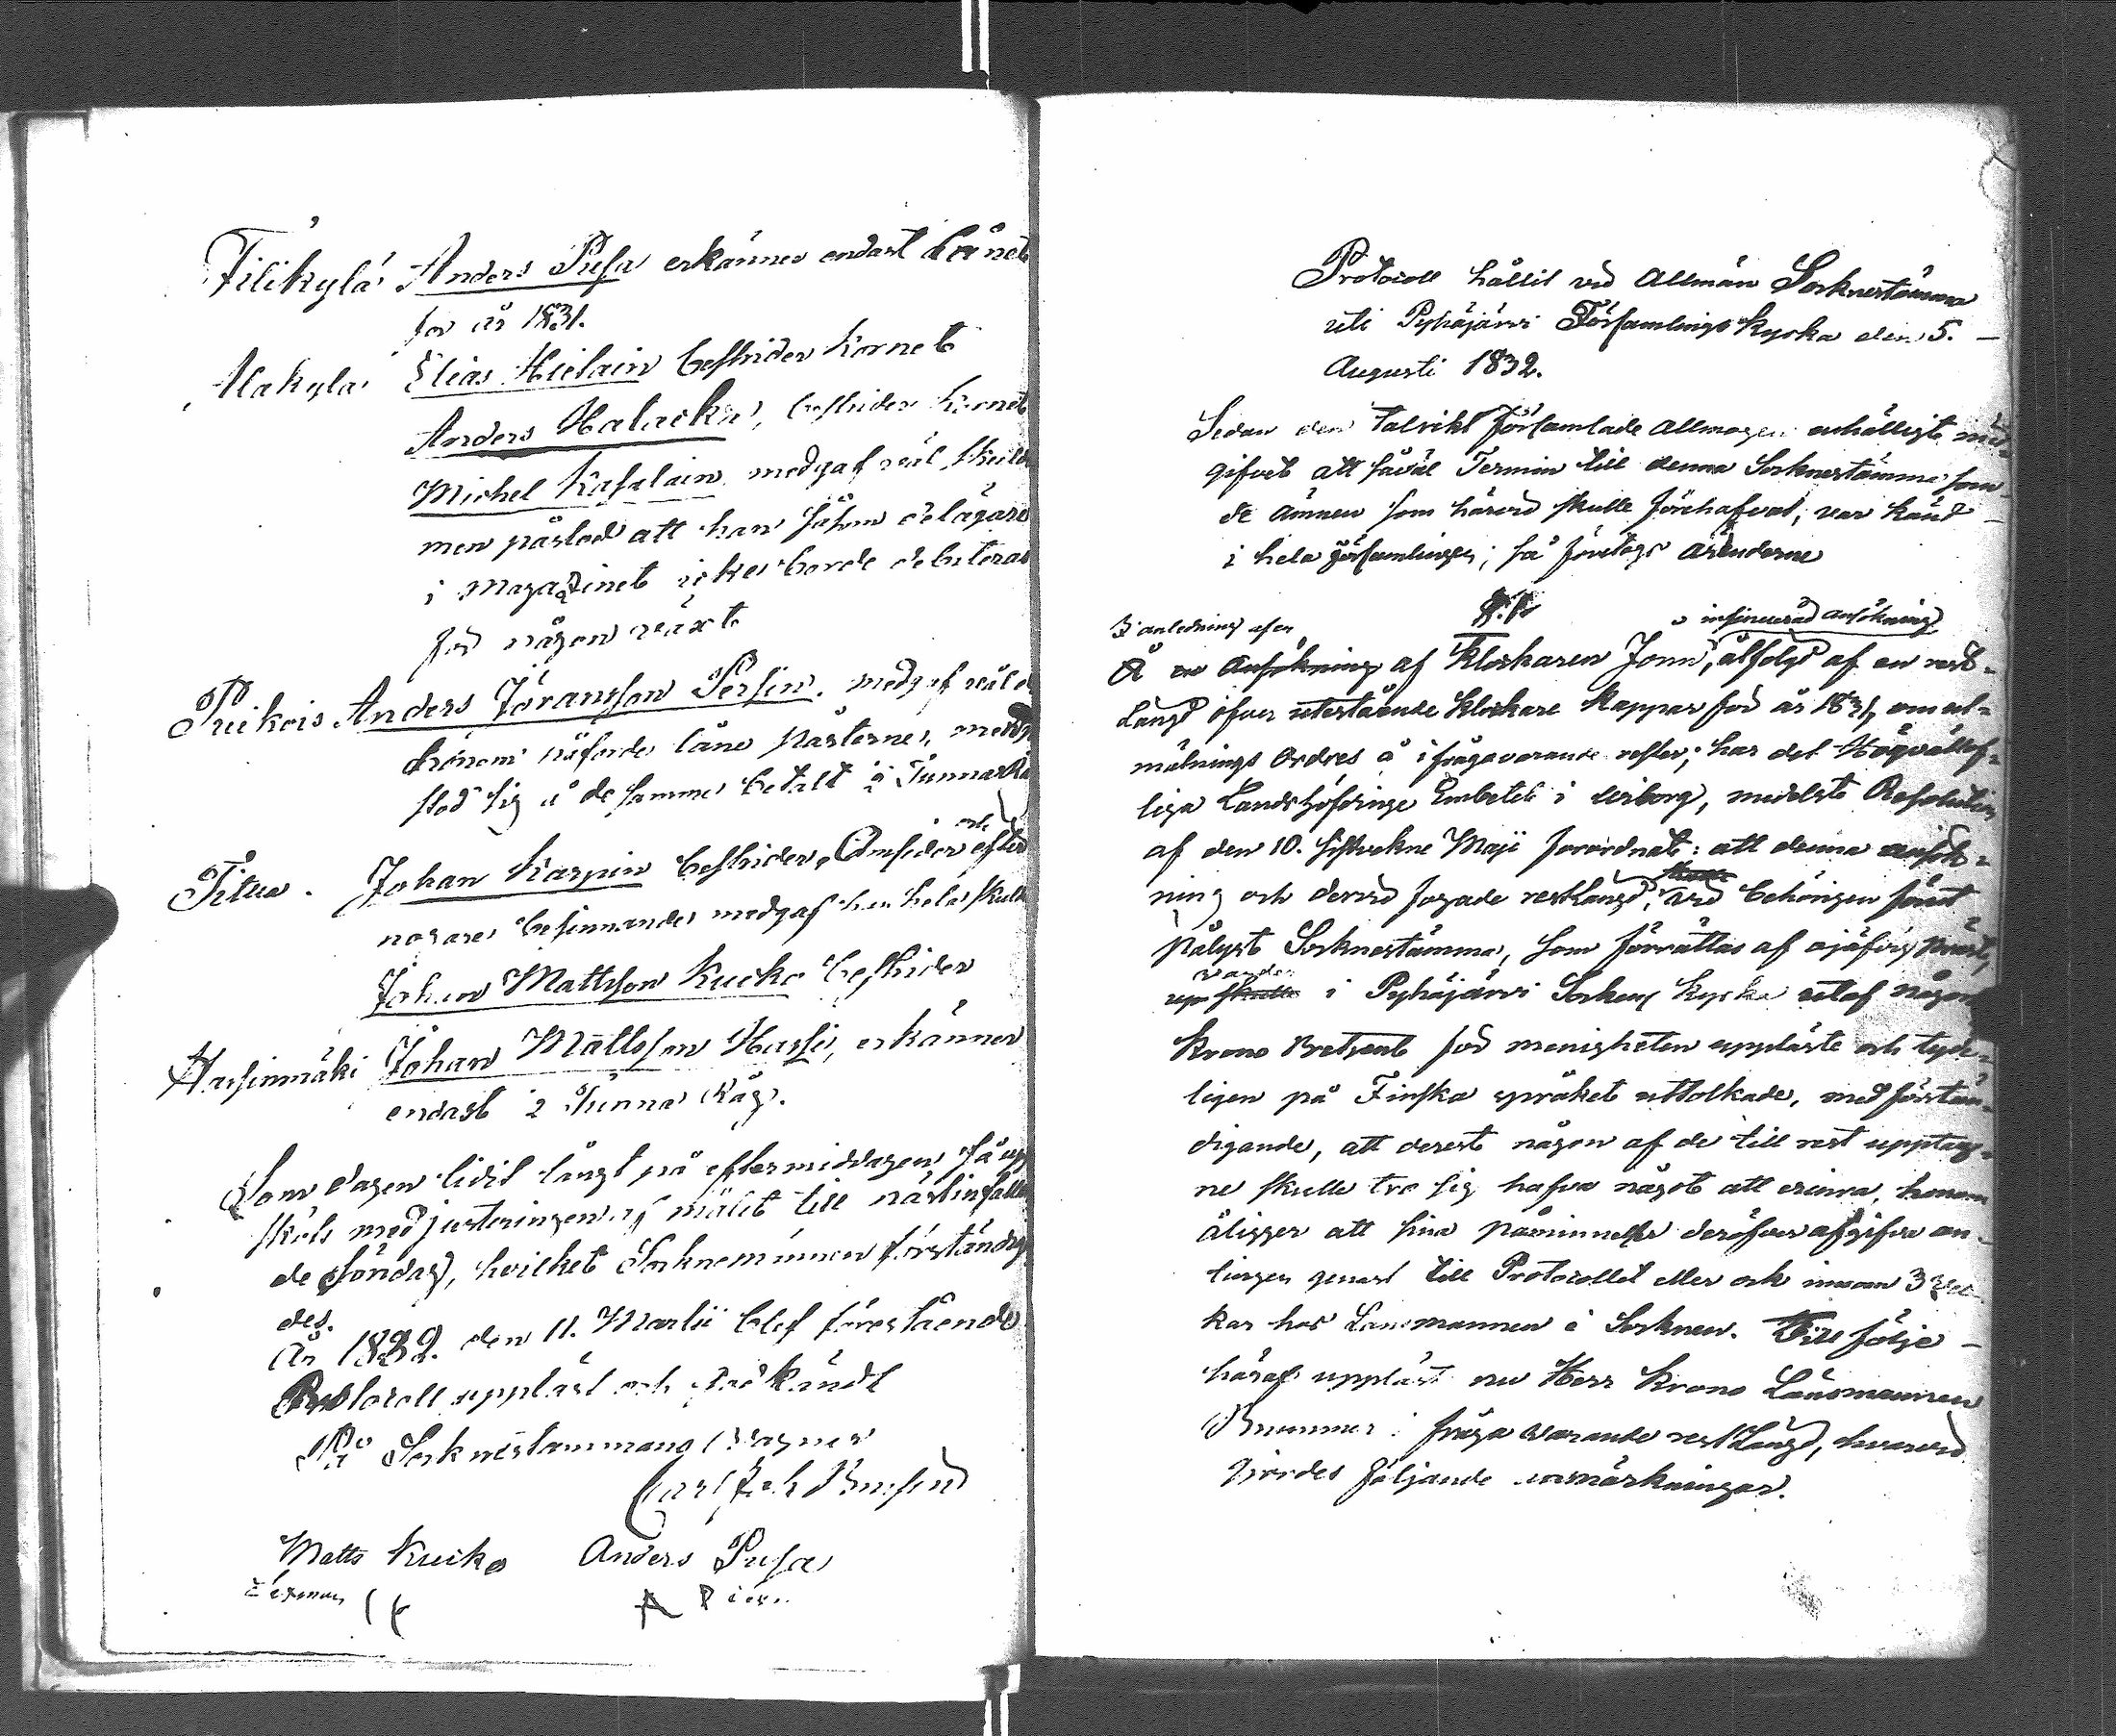 Tilikylä Anders Pusa erkänner endast Lånet
för år 1831.
Alakylä Elias Hielain bestrider Kornet
Anders Halacka, bestrider Kornet
Michel Kasalain medgaf väl skuld
men påstod att han såsom delägare
i Magazinet icke borde debiteras
för någon växt
Prickois Anders Jöransson Persin. medgaf väl
låne posterne,
stod sig å de samma betalt 2 Tunnor Rå
Titua. Johan Karpin bestrider, Omsider och efter
nogare besinnande medgaf han hela skulden
Johan Mattsson Kucko bestrider
Hassinmäki Johan Mattsson Hassi, erkänner
endast 2 Tunna Råg.
Som dagen lidit långt på eftermiddagen, så upp
sköts med justeringen af målet till nästinfallan
de söndag, hvilket Sockneminnen förständiga
des.
År 1832 den 11. Martii blef förestående
Protocoll uppläst och godkändt
På Sockne stämmans vägnar
Carl
Matts Kucko Anders Pusa
Protocoll hållit vid Allmän Socknestämma
uti Pyhäjärvi Församlings Kyrka den 5.
Augusti 1832.
Sedan den talrikt församlade Allmogen enhälligt med-
gifvit att såväl Termin till denna Socknestämma som
de ämnen som härvid skulle förehafvas, var känd
i hela församlingen; så företogs ärenderne
§. 1.
I anledning af en insinuerad ansökning
Å en Ansökning af Klockaren Jonn, åtföljd af en rest-
Längd öfver utestående Klockare Kappar för år 1831, om ut-
mätnings Ordres å ifrågavarande rester; har det Högvällof-
liga Landshöfdinge Embetet i Wiborg, medelst Resolution
af den 10. sistvekne Maji förordnat: att denna ansök-
ning och dervid fogade restlängd, skulle vid behörigen förut
pålyst Socknestämma, som förrättas af ojäfvig Präst,
skulle i Pyhäjärvi Sockens Kyrka utaf någon
Krono Betjent för menigheten uppläste och tyde-
ligen på Finska språket uttolkade, med förstän-
digande, att derest någon af de till rest upptag-
ne skulle tro sig hafva något att erinra, honom
åligger att sina påminnelser deröfver afgifva an-
tingen genast till Protocollet eller ock innom 3 vec-
kor hos Länsmannen i Socknen. Till följe
häraf uppläst nu Herr Krono Länsmannen
Brummer i fråga varande rest Längd, hvarvid
gjordes följande anmärkningar.